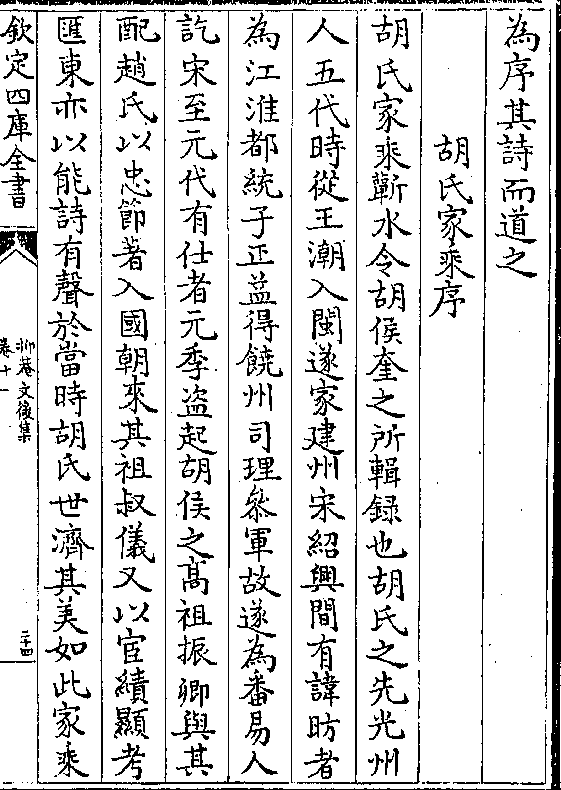 為序其詩而道之
胡氏家乘序
胡氏家乘蘄水令胡侯奎之所輯録也胡氏之先光州
人五代時從王潮入閩遂家建州宋紹興間有諱昉者
為江淮都統子正益得饒州司理叅軍故遂為番易人
訖宋至元代有仕者元季盗起胡侯之高祖振卿與其
配趙氏以忠節著入國朝來其祖叔儀又以宦績顯考
匯東亦以能詩有聲於當時胡氏世濟其美如此家乘
欽定四庫全書
抑菴文後集
卷十一
二十四